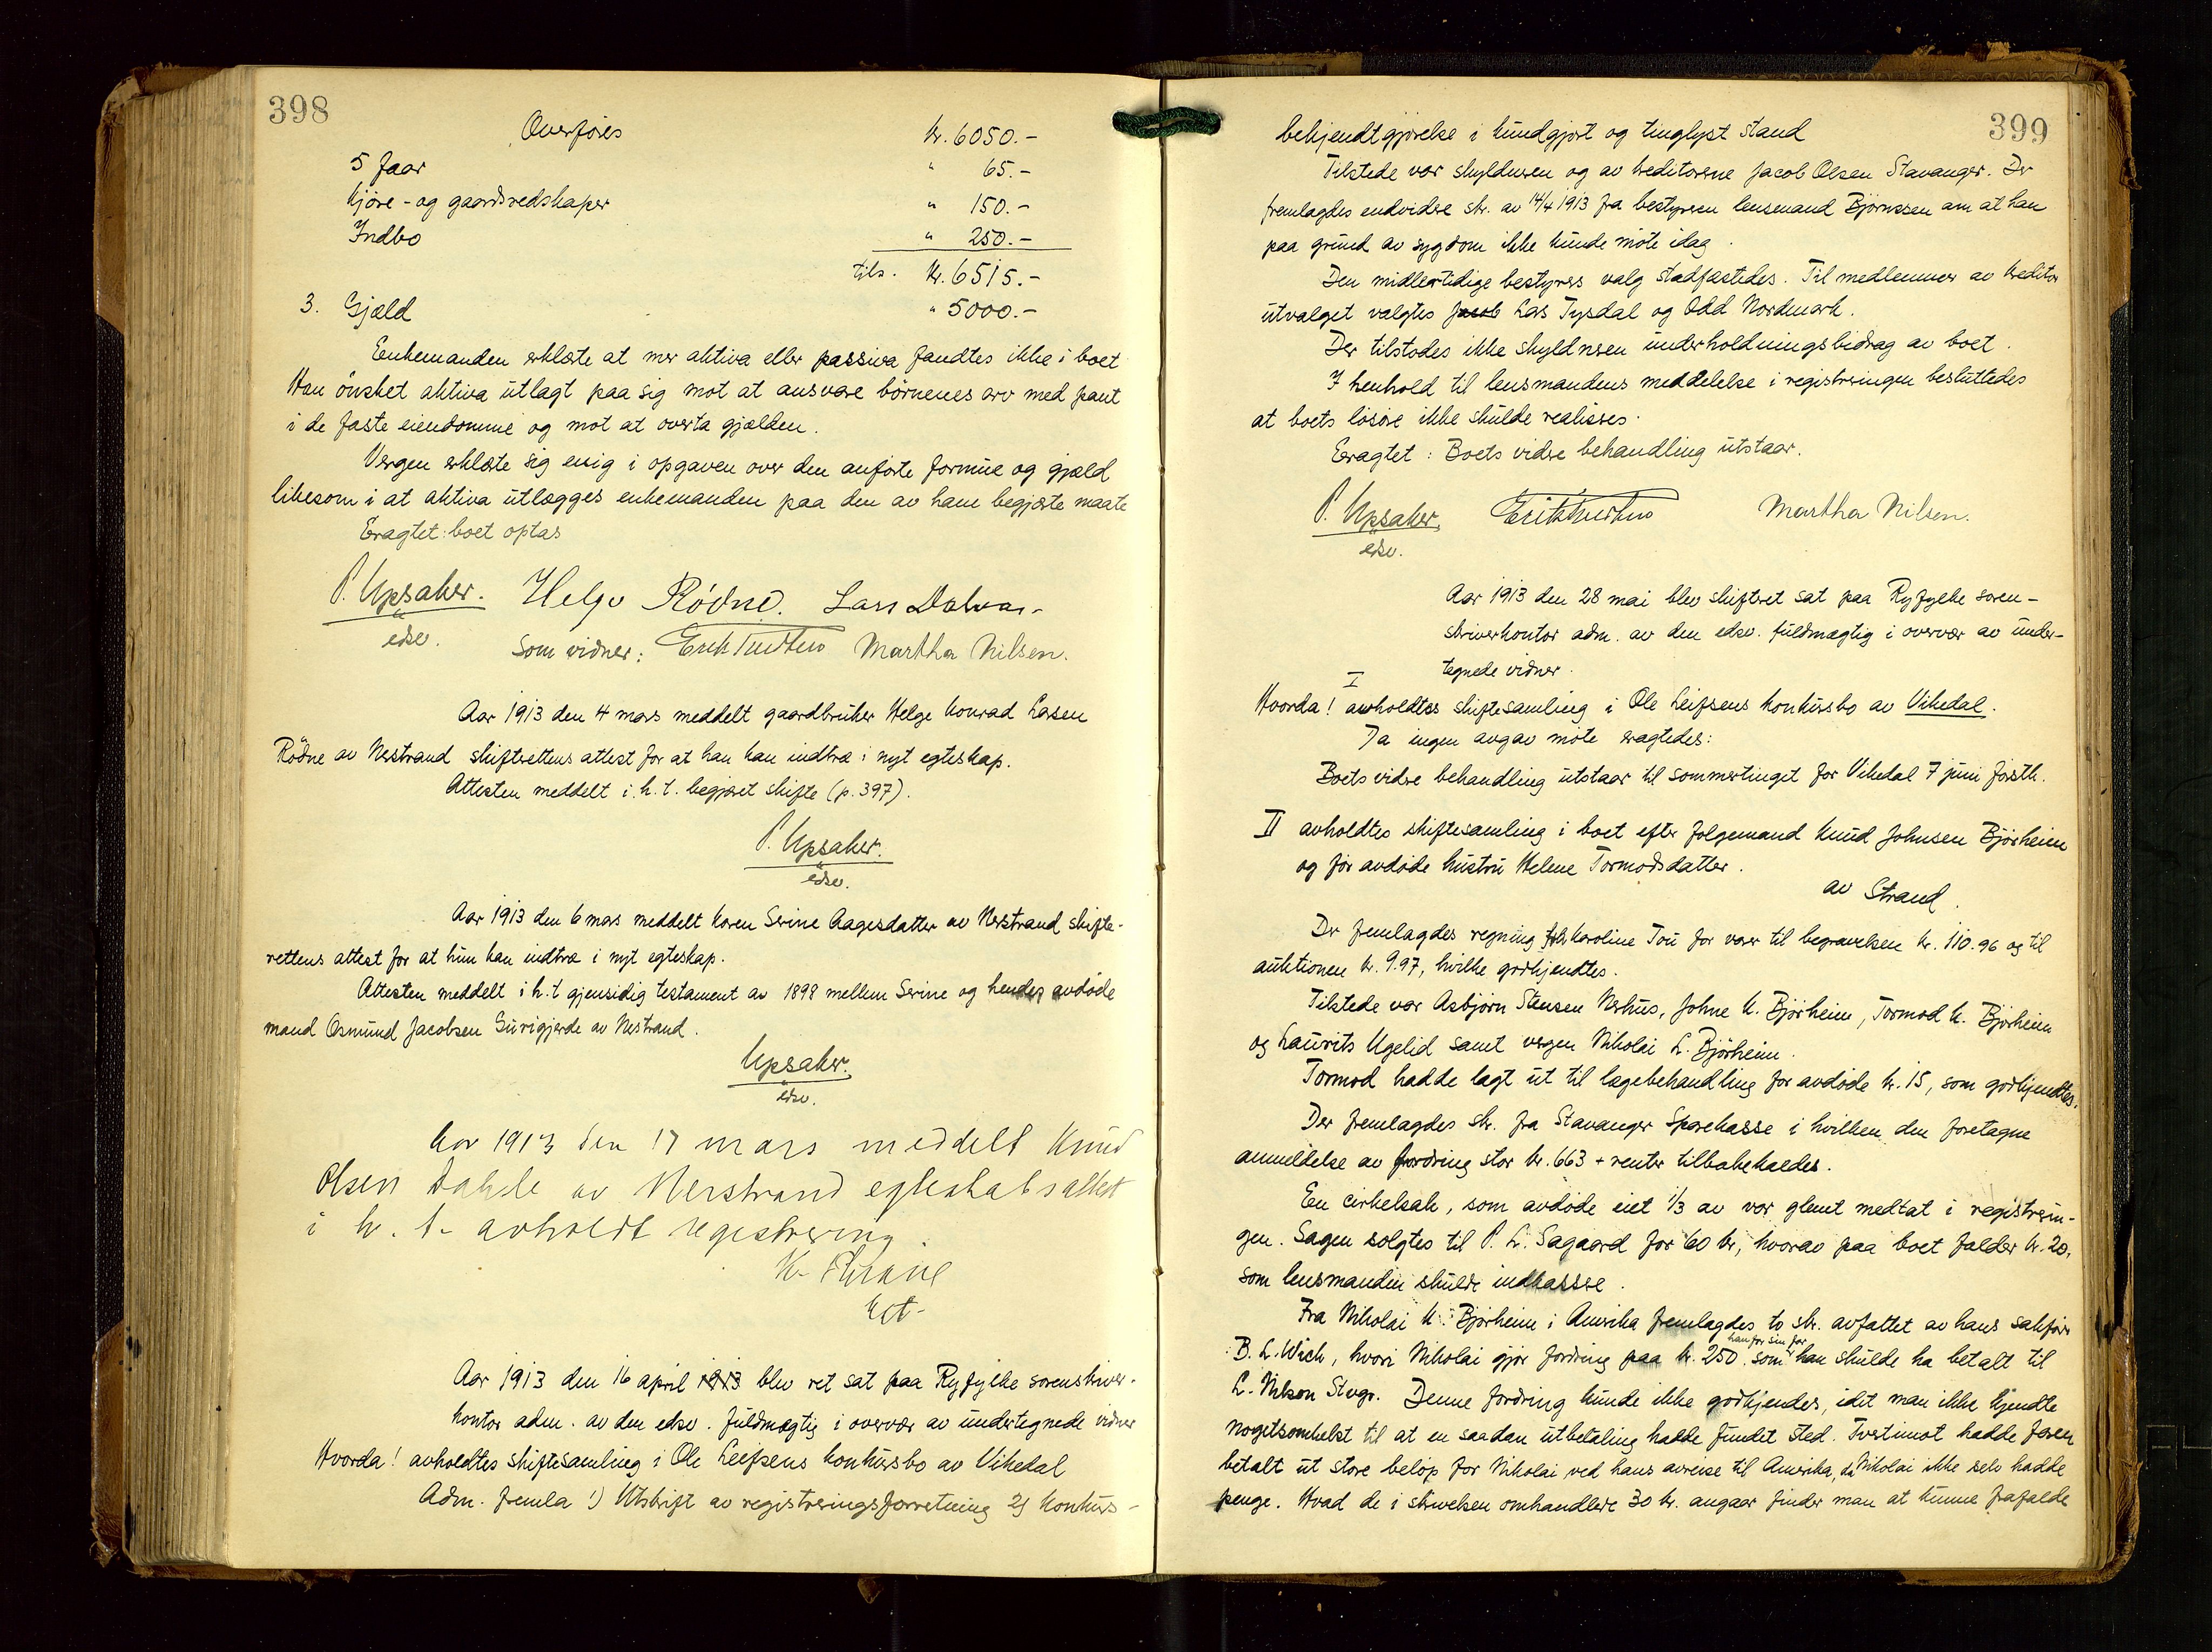 398
Overføres kr. 6050.-
5 faar " 65.-
Kjøre- og gaardsredskaper " 150.-
Indbo " 250.-
tils. kr. 6515.-
3. Gjæld " 5000.-
Enkemanden erklærte at mer aktiva eller passiva fandtes ikke i boet
Han ønsket aktiva utlagt paa sig mot at ansvare børnenes arv med pant
i de faste eiendomme og mot at overta gjælden.
Vergen erklærte sig enig i opgaven over den anførte formue og gjæld
likesom i at aktiva utlægges enkemanden paa den av ham begjærte maate
Eragtet: boet optas
P. Upsaker. Helge Rødne. Lars Dalvar-
edsv. Som vidner: Martha Nilsen.
Aar 1913 den 4 mars meddelt gaardbruker Helge Konrad Larsen
Rødne av Nerstrand skifterettens attest for at han kan indtræ i nyt egteskap.
Attesten meddelt i h. t. begjæret skifte (p. 397).
P. Upsaker.
edsv.
Aar 1913 den 6 mars meddelt Karen Serine Aagesdatter av Nerstrand skifte-
rettens attest for at hun kan indtræ i nyt egteskap.
Attesten meddelt i h. t. gjensidig testament av 1898 mellem Serine og hendes avdøde
mand Osmund Jacobsen Gurigjerde av Nerstrand.
Upsaker.
edsv.
Aar 1913 den 17 mars meddelt Knud
Olsen Dahle av Nerstrand egteskabsattest
i h. t. avholdt registrering.
K.
kst-
Aar 1913 den 16 april 1913 blev ret sat paa Ryfylke sorenskriver-
kontor adm. av den edsv. fuldmægtig i overvær av undertegnede vidner
Hvorda! avholdtes skiftesamling i Ole Leifsens konkursbo av Vikedal
Adm. fremla 1) Utskrift av registreringsforretning 2) konkurs-
399
bekjendtgjørelse i kundgjort og tinglyst stand
Tilstede var skyldneren og av kreditorerne Jacob Olsen Stavanger. Der
fremlagdes endvidere skr. av 14/4 1913 fra bestyreren lensmand Bjørnssen om at han
paa grund av sygdom ikke kunde møte idag.
Den midlertidige bestyrers valg stadfæstedes. Til medlemmer av kreditor
utvalget valgtes Jacob Lars Tysdal og Odd Nordmark.
Der tilstodes ikke skyldneren underholdningsbidrag av boet.
I henhold til lensmandens meddelelse i registreringen besluttedes
at boets løsøre ikke skulde realiseres.
Eragtet: Boets videre behandling utstaar.
P. Upsaker. Martha Nilsen.
edsv.
Aar 1913 den 28 mai blev skifteret sat paa Ryfylke soren-
skriverkontor adm. av den edsv. fuldmægtig i overvær av under-
tegnede vidner.
I
Hvorda! avholdtes skiftesamling i Ole Leifsens konkursbo av Vikedal.
Da ingen avgav møte eragtedes:
Boets videre behandling utstaar til sommertinget for Vikedal 7 juni førstk.
II avholdtes skiftesamling i boet efter følgemand Knud Johnsen Bjørheim
og før avdøde hustru Helene Tormodsdatter.
av Strand.
Der fremlagdes regning fra Karoline Tou for varer til begravelsen kr. 110.96 og til
auktionen kr. 9.97, hvilke godkjendtes.
Tilstede var Asbjørn Stensen Nerhus, Johne K. Bjørheim, Tormod K. Bjørheim
og Laurits Ugelid samt vergen Nikolai L. Bjørheim.
Tormod hadde lagt ut til lægebehandling for avdøde kr. 15, som godkjendtes.
Der fremlagdes skr. fra Stavanger Sparekasse i hvilken den foretagne
anmeldelse av fordring stor kr. 663 + renter tilbakekaldes.
En cirkelsak, som avdøde eiet 1/3 av var glemt medtat i registrerin-
gen. Sagen solgtes til P. L. Sagaard for 60 kr., hvorav paa boet falder kr. 20,
som lensmanden skulde indkassere.
Fra Nikolai K. Bjørheim i Amerika fremlagdes to skr. avfattet av hans sakfører
han for sin far
B. L. Wick, hvori Nikolai gjør fordring paa kr. 250. som han skulde ha betalt til
L. Nilson Stvgr. Denne fordring kunde ikke godkjendes, idet man ikke kjendte
nogetsomhelst til at en saadan utbetaling hadde fundet sted. Tvertimot hadde faren
betalt ut store beløp for Nikolai ved hans avreise til Amerika, da Nikolai ikke selv hadde
penge. Hvad de i skrivelsen omhandlede 30 kr. angaar finder man at kunne frafalde